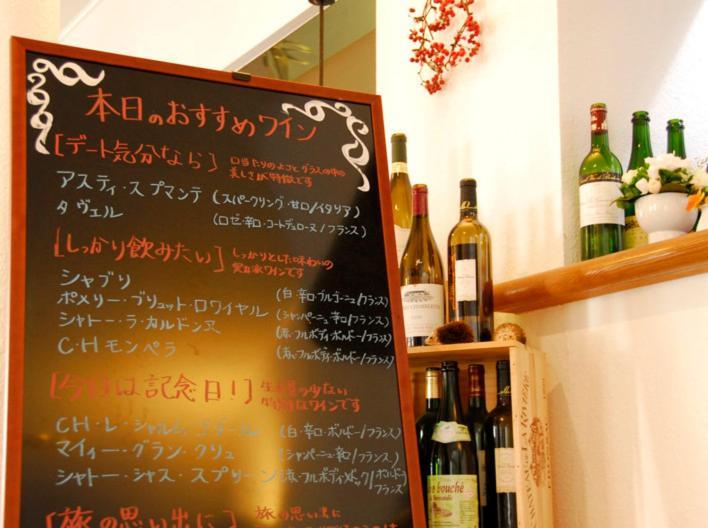 本日のおすすめワイン
[デート気分なら] 口当たりのよさとグラスの中の
美しさが特徴です
アスティ・スプマンテ (スパークリング・甘口/イタリア)
タヴェル (ロゼ・辛口・コートデュローヌ/フランス)
[しっかり飲みたい] しっかりとした味わいの
ワインです
シャブリ (白・辛口・ブルゴーニュ/フランス)
ポメリー・ブリュット・ロワイヤル (シャンパーニュ・辛口/フランス)
シャトー・ラ・カルドンヌ (赤・フルボディ・ボルドー/フランス)
C.H モンペラ (赤・フルボディ・ボルドー/フランス)
[今日は記念日!] 生産量の少ない
特別なワインです
CH・レ・シャルム・ (白・辛口・ボルドー/フランス)
マイィー・グラン・クリュ (シャンパーニュ・辛口/フランス)
シャトー・シャス・スプリーン (赤・フルボディ・メドック/ボルドー
フランス)
[旅の思い出に] 旅の思い出に
bouché